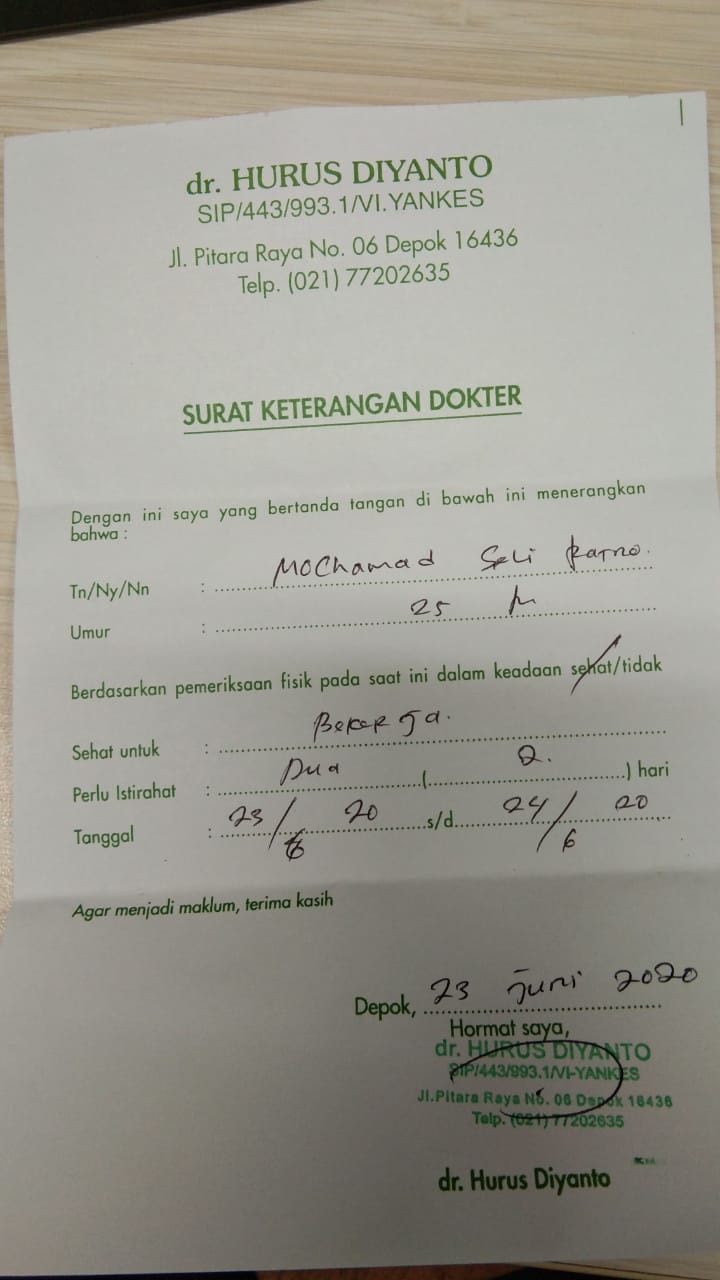 dr. HURUS DIYANTO
SIP/443/993.1/VI.YANKES
Jl. Pitara Raya No. 06 Depok 16436
Telp. (021) 77202635
SURAT KETERANGAN DOKTER
Dengan ini saya yang bertanda tangan di bawah ini menerangkan
bahwa :
Tn/Ny/Nn : Mochamad Seli Karno.
Umur : 25
Berdasarkan pemeriksaan fisik pada saat ini dalam keadaan sehat/tidak
Sehat untuk : Bekerja.
Perlu Istirahat : Dua ( 2. ) hari
Tanggal : 23/6 20 s/d 24/6 20
Agar menjadi maklum, terima kasih
Depok, 23 Juni 2020
Hormat saya,
dr. HURUS DIYANTO
SIP/443/993.1/VI-YANKES
Jl.Pitara Raya No. 06 Depok 16436
Telp. (021) 77202635
dr. Hurus Diyanto